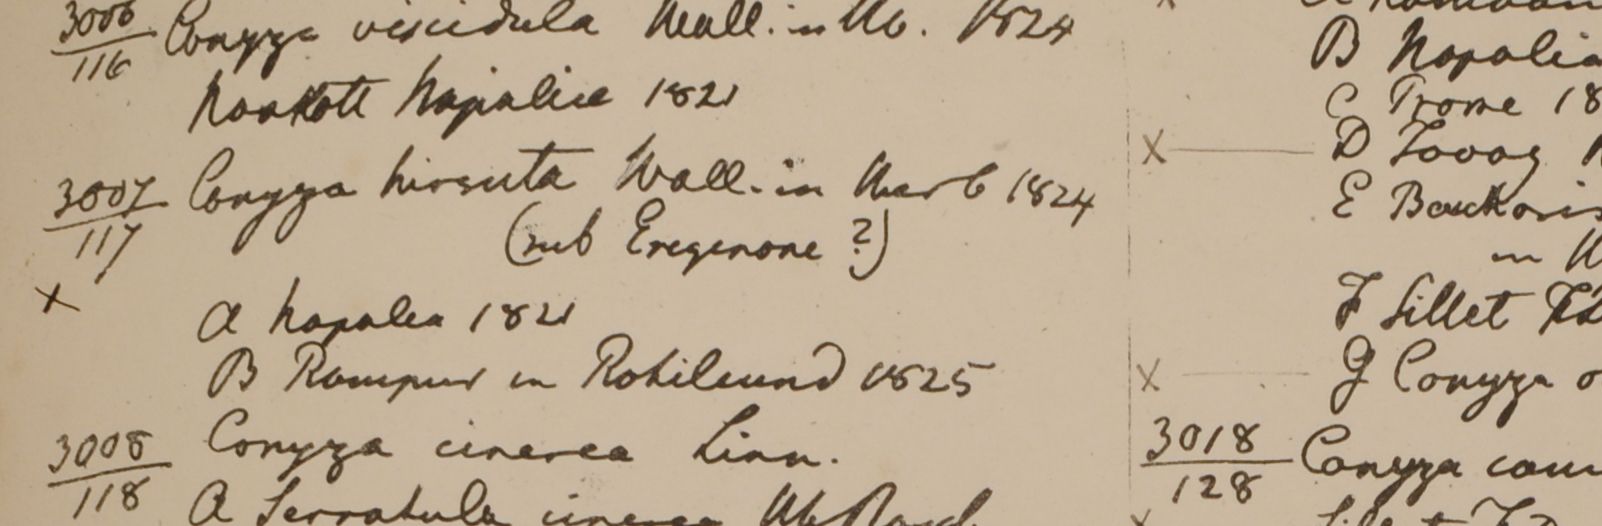 3006/116 Conyza viscidula Wall. in Hb. 1824
Napaliae 1821
3007/117 Conyza hirsuta Wall. in Herb 1824
(sub Eregerone ?)
x
A Napalea 1821
B Rampur in Rohilcund 1825
3008/118 Conyza cinerea Linn.
A Serratula cinerea Hb Roxb.
x
B Napalia
C Prome 18
x D Tavoy
E
in
F Sillet
x G Conyza
3018/128 Conyza